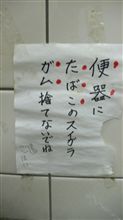 便器に
たばこのスイガラ
ガム捨てないでね